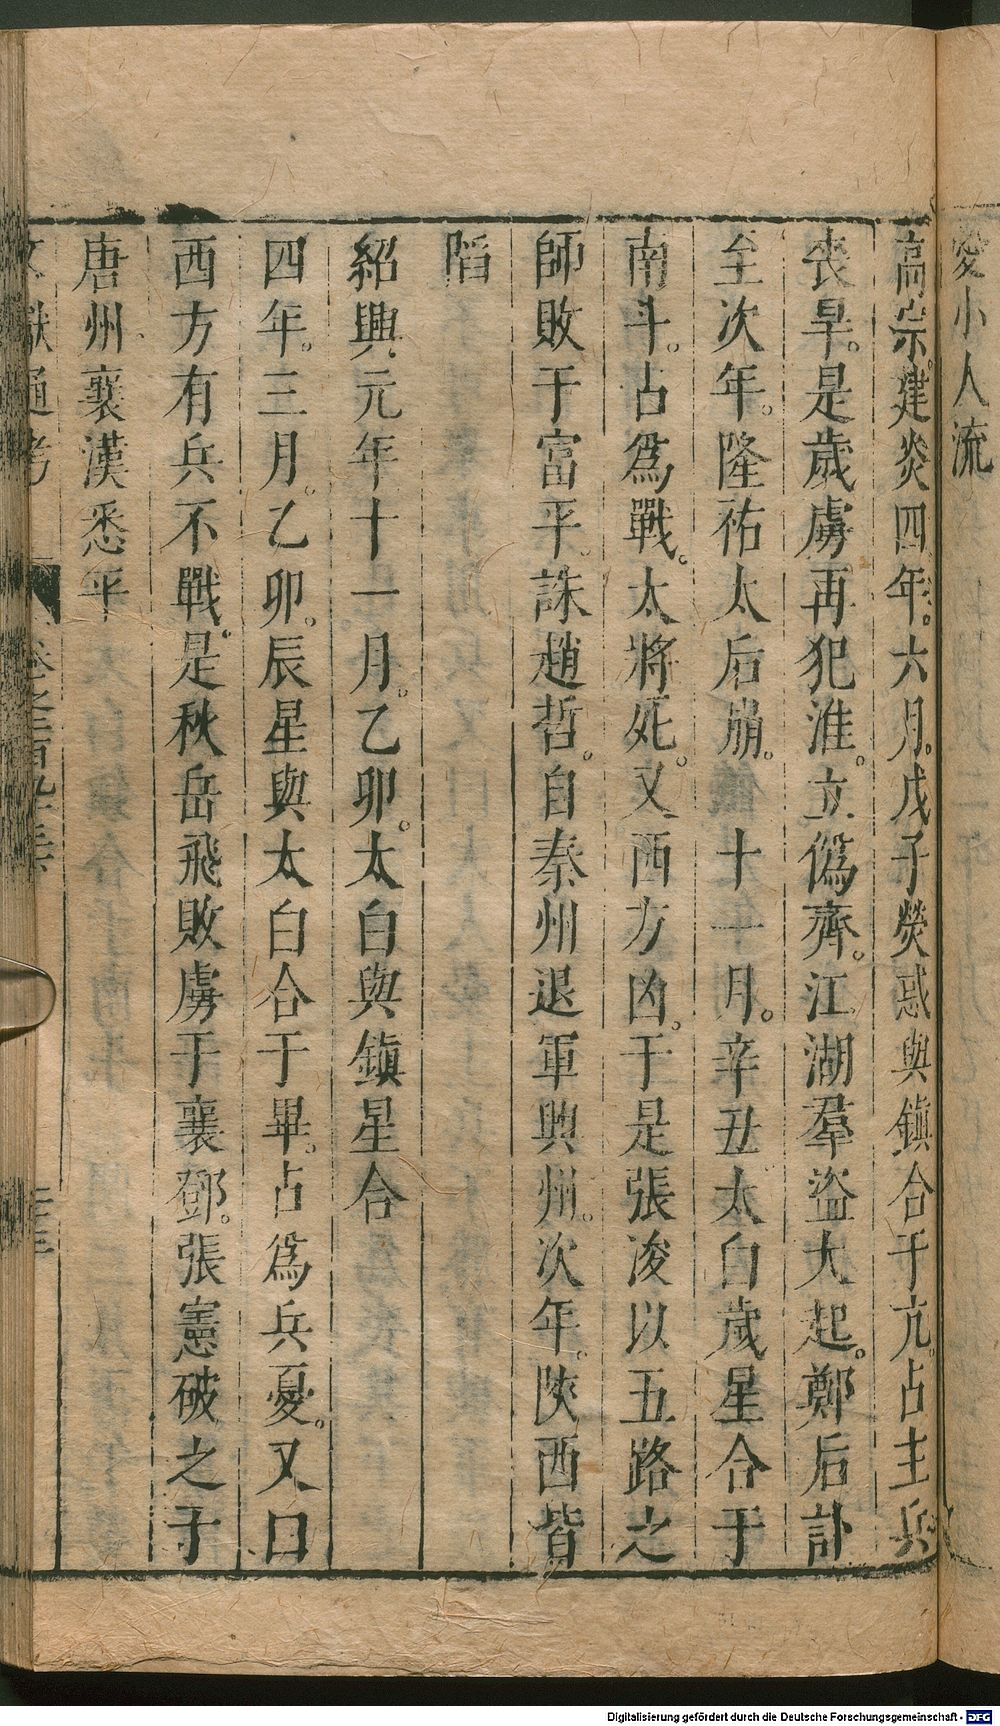 愛小人流
高宗建炎四年。六月。戊子熒惑與鎮合于亢。占主兵
喪旱。是歲虜再犯淮。立僞齊。江湖羣盜大起。鄭后訃
至次年。隆祐太后崩。 十一月。辛丑太白歲星合于
南斗。占爲戰。太將死。又西方凶。于是張浚以五路之
師敗于富平。誅趙哲。自秦州退軍興州。次年。陝西皆
陷
紹興元年十一月。乙卯。太白與鎮星合
四年。三月。乙卯。辰星與太白合于畢。占爲兵憂。又曰
西方有兵不戰。是秋岳飛敗虜于襄鄧。張憲破之于
唐州襄漢悉平
文獻通考
Digitalisierung gefördert durch die Deutsche Forschungsgemeinschaft - DFG